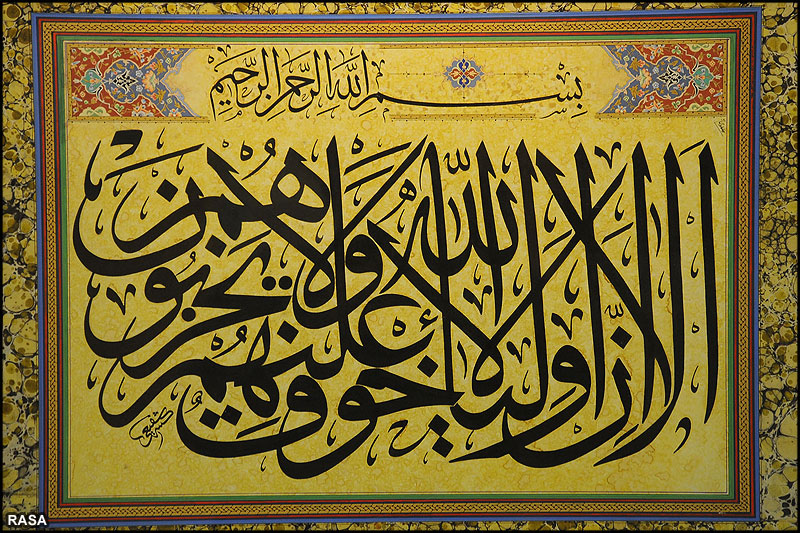 بسم الله الرحمن الرحيم
ألا إن أولياء الله لا خوف عليهم ولا هم يحزنون
RASA